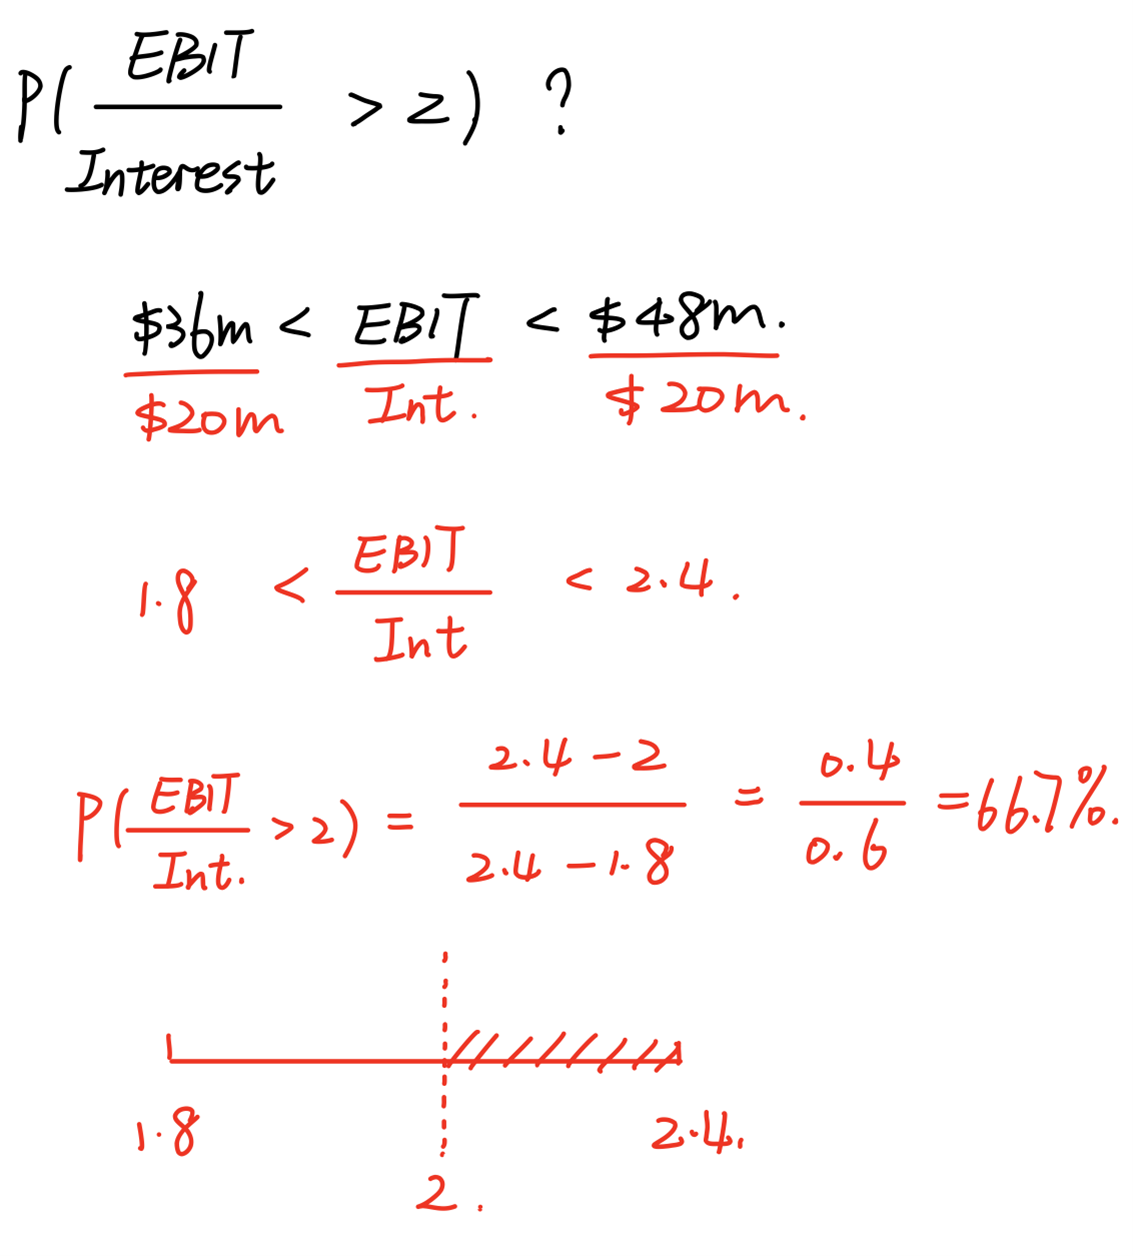 P( EBIT / Interest > 2) ?
$36m < EBIT < $48m.
$20m Int. $20m.
1.8 < EBIT / Int < 2.4.
P( EBIT / Int. > 2) = 2.4 - 2 / 2.4 - 1.8 = 0.4 / 0.6 = 66.7%.
1.8 2.4.
2.